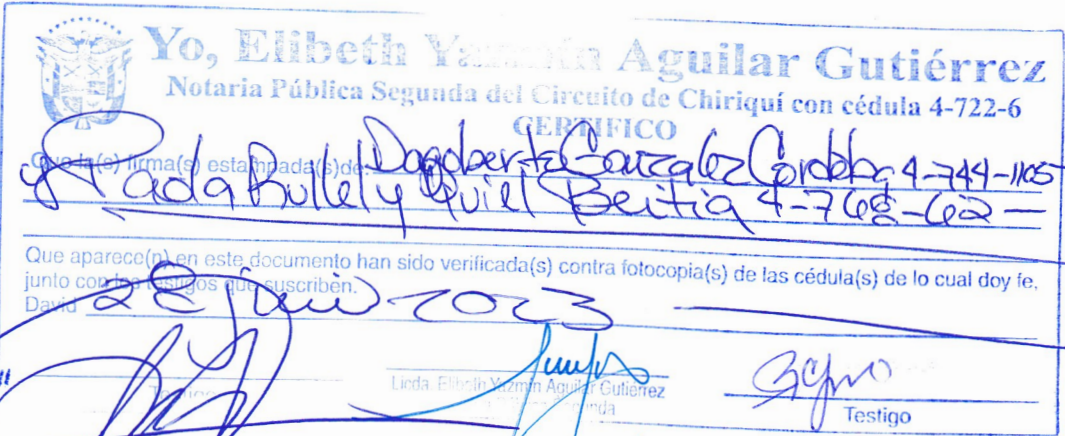 Yo, Elibeth Yazmín Aguilar Gutiérrez
Notaria Pública Segunda del Circuito de Chiriquí con cédula 4-722-6
CERTIFICO
Que la(s) firma(s) estampada(s)de: Dagoberto Gonzalez Cordoba 4-744-1105
Quiel Beitia 4-768-62
Que aparece(n) en este documento han sido verificada(s) contra fotocopia(s) de las cédula(s) de lo cual doy fe,
junto con los testigos que suscriben.
David 28 2023
Licda. Elibeth Yazmín Aguilar Gutiérrez
Testigo